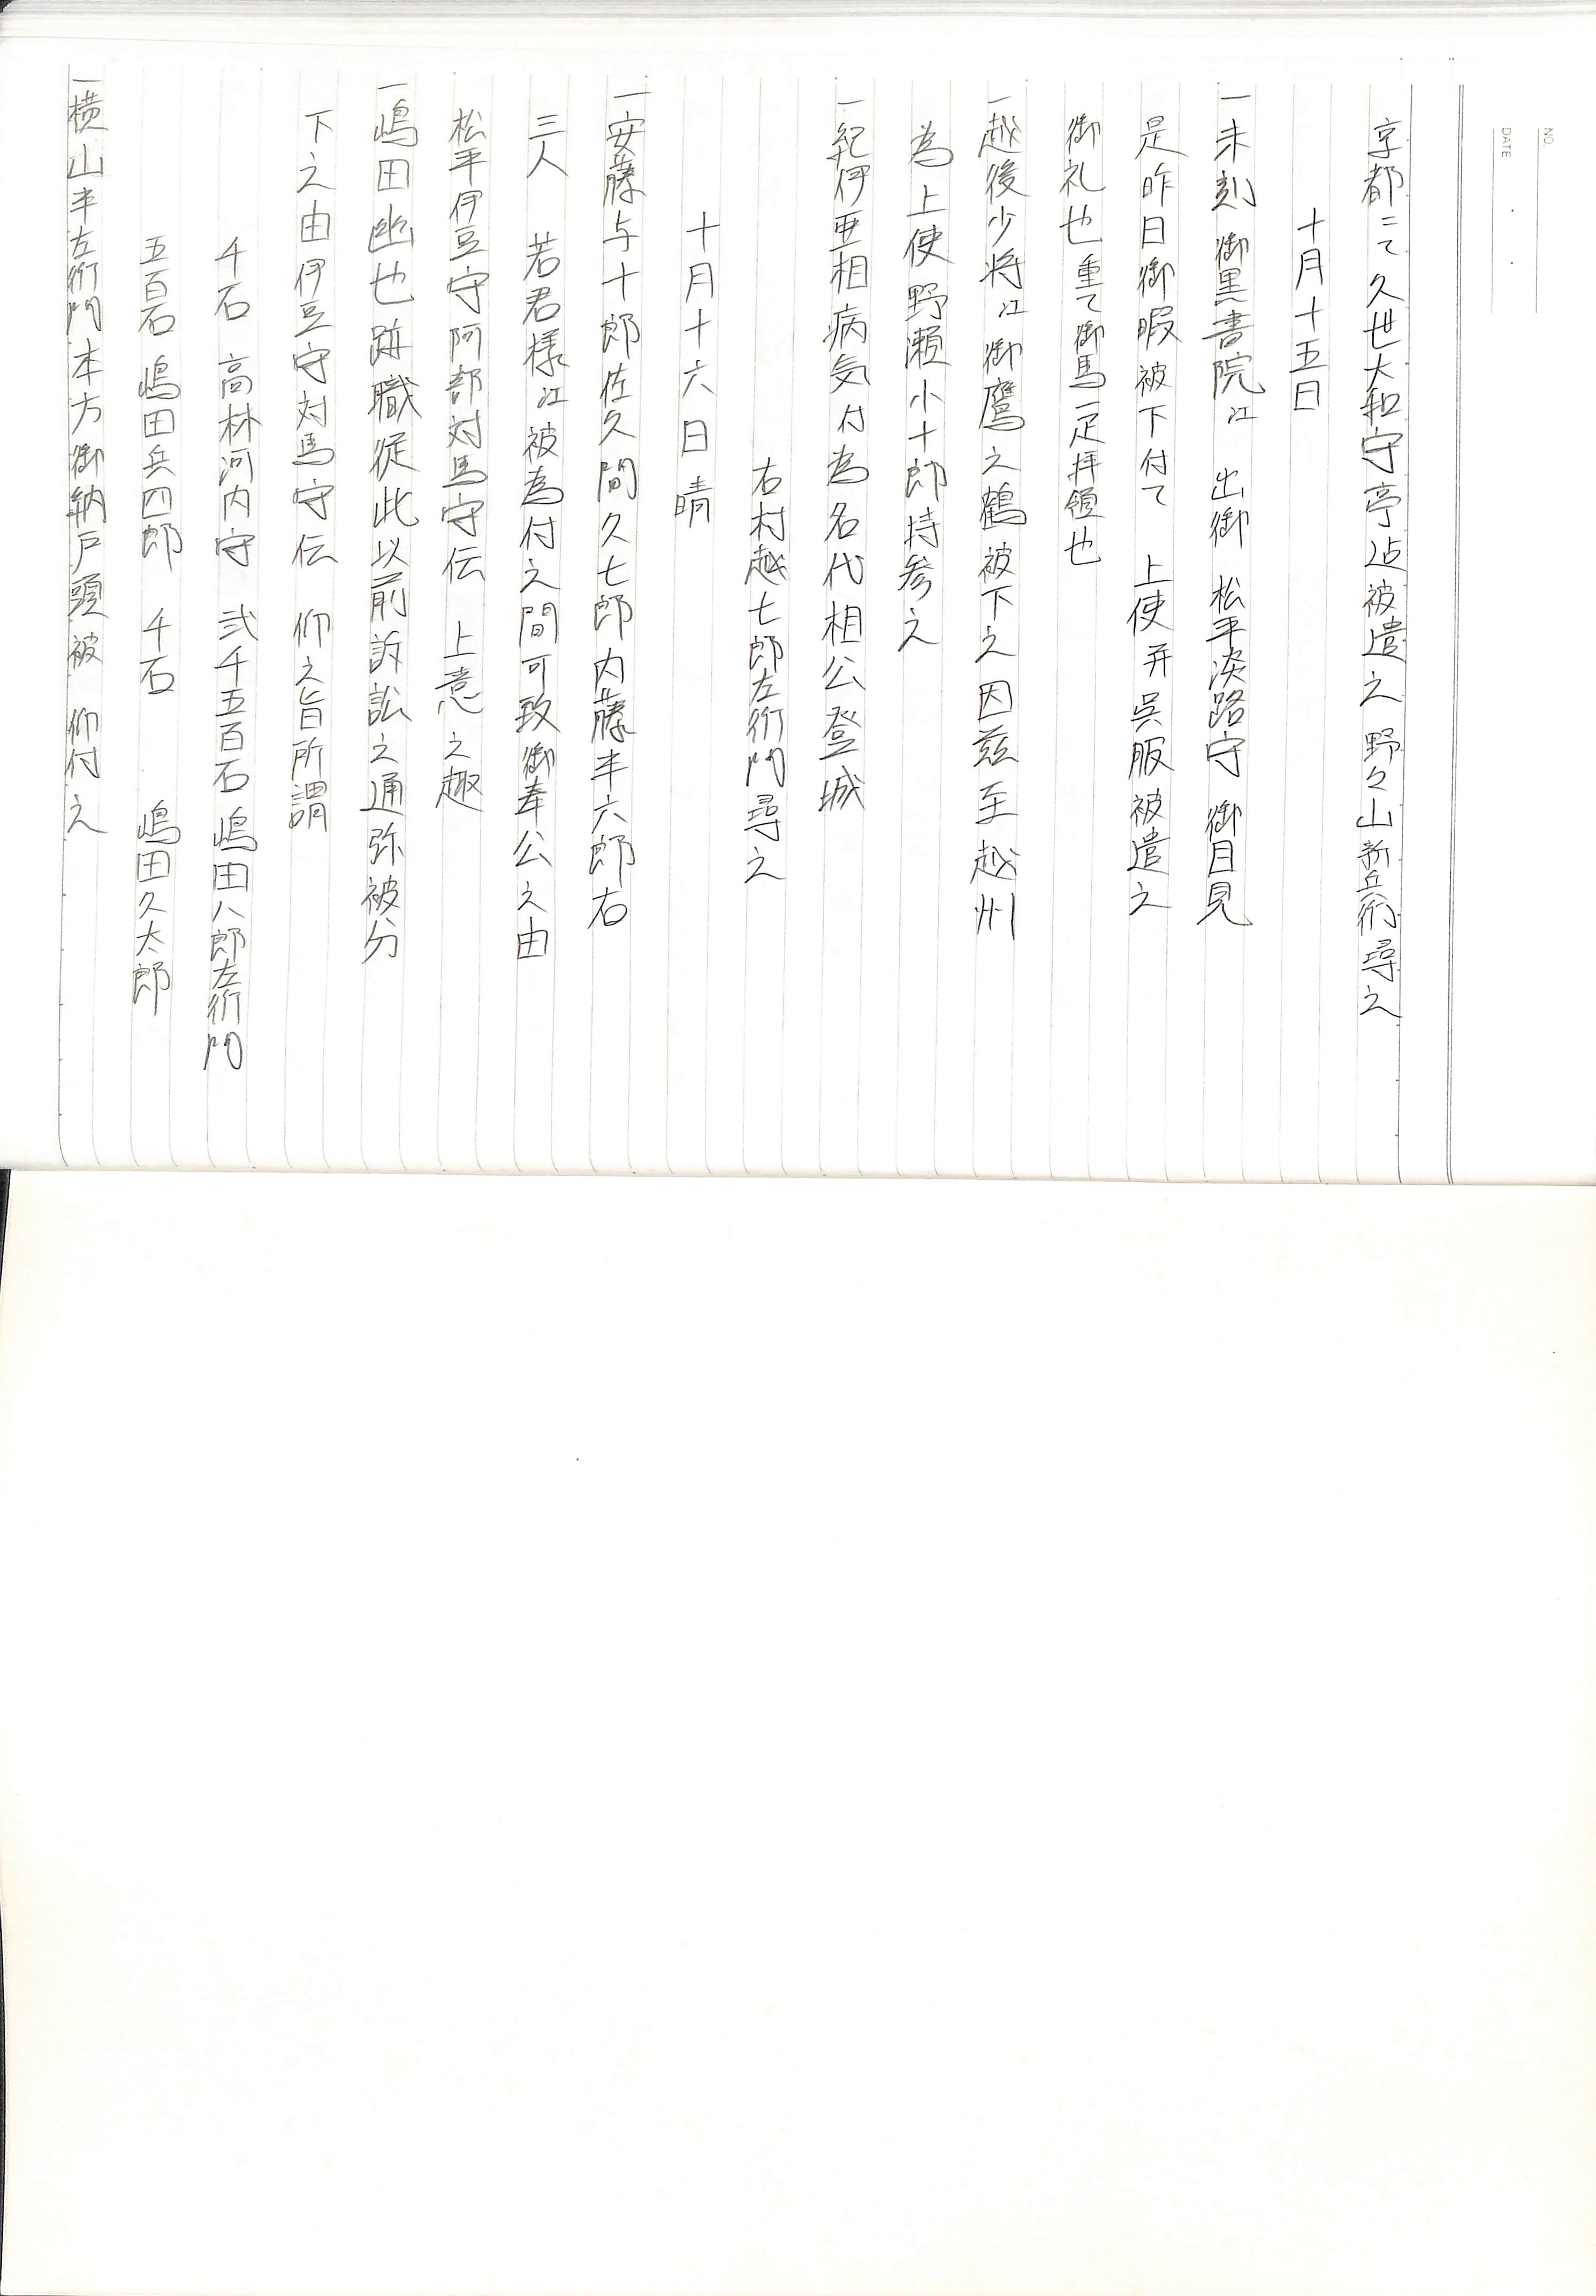 NO.
DATE
京都ニて久世大和守亭迠被遣之　野々山新兵衛尋之
十月十五日
一未刻　御黒書院江　出御　松平淡路守　御目見
是昨日御暇被下付て　上使并呉服被遣之
御礼也重て御馬一疋拝領也
一越後少将江御鷹之鶴被下之因茲至越州
為上使野瀬小十郎持参之
一紀伊亜相病気付為名代相公登城
右村越七郎左衛門尋之
十月十六日晴
一安藤与十郎佐久間久七郎内藤半六郎右
三人　若君様江被為付之間可致御奉公之由
松平伊豆守阿部対馬守伝　上意之趣
一嶋田幽也跡職従此以前訴訟之通弥被分
下之由伊豆守対馬守伝　仰之旨所謂
千石　高林河内守　弐千五百石　嶋田八郎左衛門
五百石　嶋田兵四郎　千石　嶋田久太郎
一横山半左衛門本方御納戸頭被　仰付之